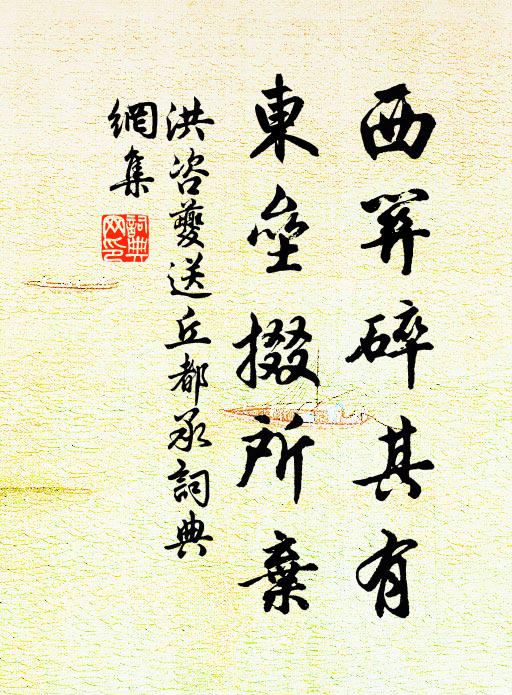 西羿碎其有
東壘掇所棄
洪咨夔送丘都承詞典
網集
詞典
网印